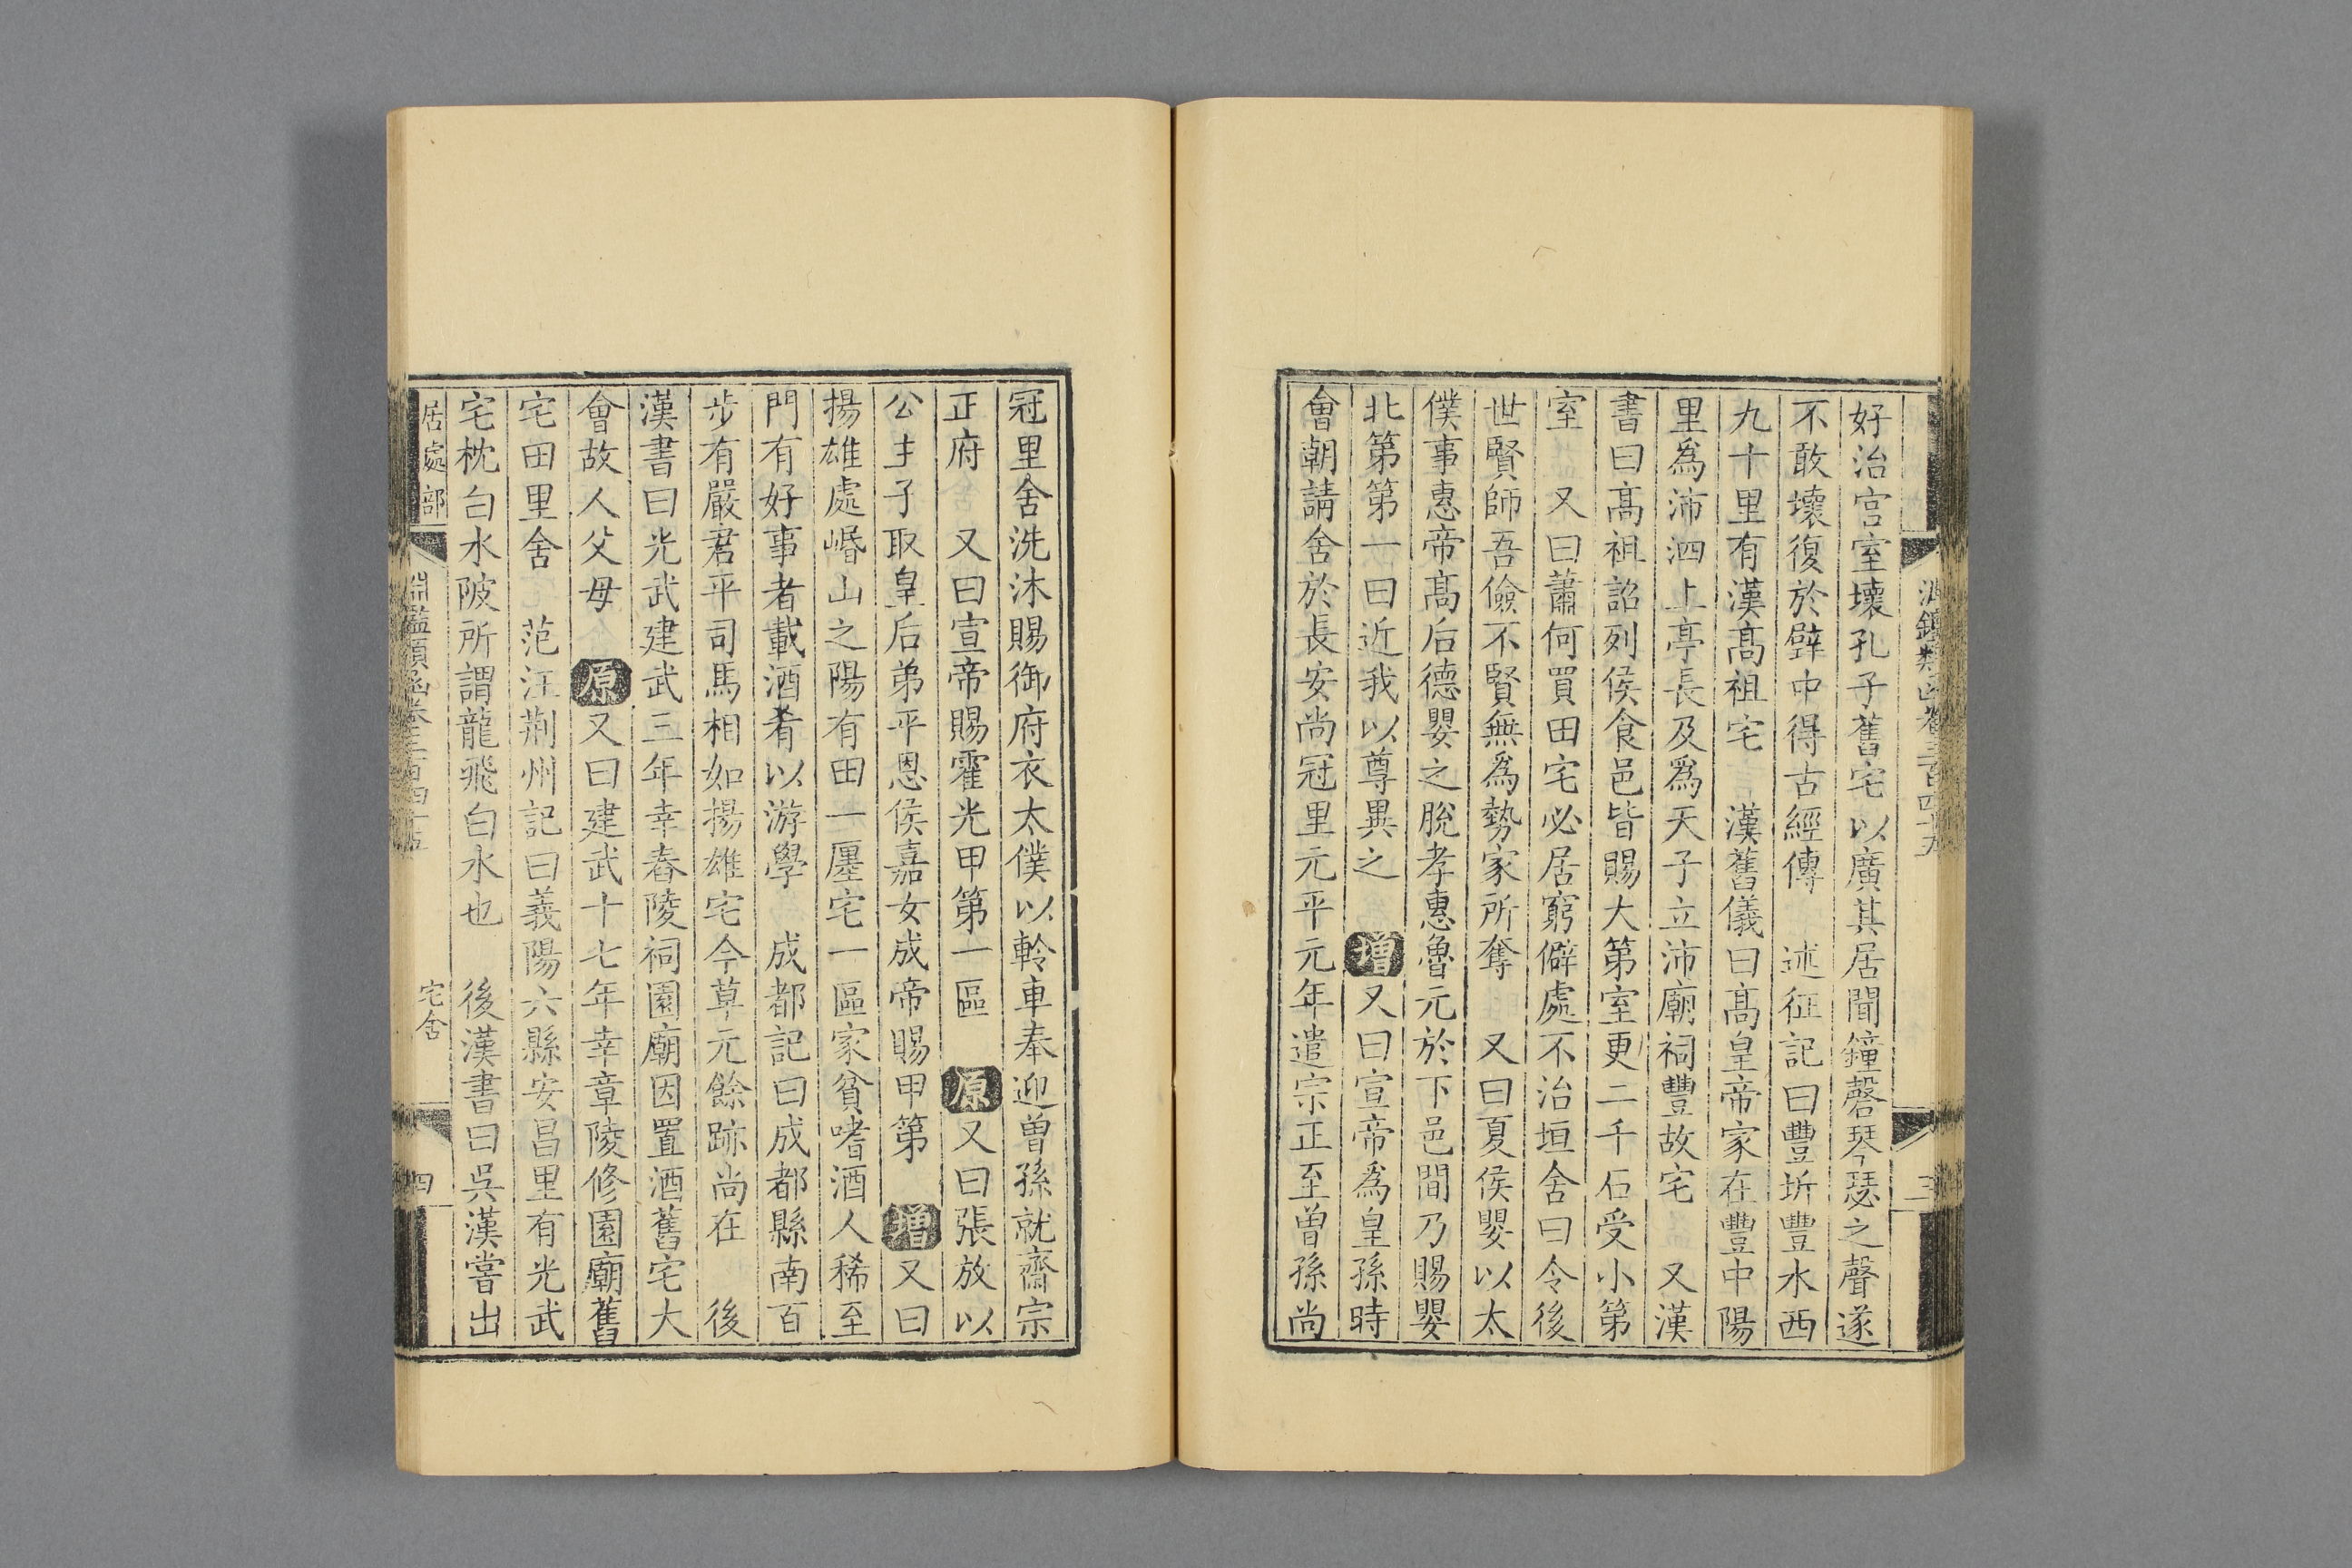 淵鑑類函卷三百四十五
三
好治宮室壞孔子舊宅以廣其居聞鐘磬琴瑟之聲遂
不敢壞復於壁中得古經傳　述征記曰豐圻豐水西
九十里有漢高祖宅　漢舊儀曰高皇帝家在豐中陽
里爲沛泗上亭長及爲天子立沛廟祠豐故宅　又漢
書曰高祖詔列侯食邑皆賜大第室更二千石受小第
室　又曰蕭何買田宅必居窮僻處不治垣舍曰令後
世賢師吾儉不賢無爲勢家所奪　又曰夏侯嬰以太
僕事惠帝高后德嬰之脫孝惠魯元於下邑間乃賜嬰
北第第一曰近我以尊異之　增又曰宣帝爲皇孫時
會朝請舍於長安尚冠里元平元年遣宗正至曾孫尚
冠里舍洗沐賜御府衣太僕以軨車奉迎曾孫就齋宗
正府　又曰宣帝賜霍光甲第一區　原又曰張放以
公主子取皇后弟平恩侯嘉女成帝賜甲第　增又曰
揚雄處崏山之陽有田一㕓宅一區家貧嗜酒人稀至
門有好事者載酒肴以游學　成都記曰成都縣南百
步有嚴君平司馬相如揚雄宅今草元餘跡尚在　後
漢書曰光武建武三年幸舂陵祠園廟因置酒舊宅大
會故人父母　原又曰建武十七年幸章陵修園廟舊
宅田里舍　范汪荆州記曰義陽六縣安昌里有光武
宅枕白水陂所謂龍飛白水也　後漢書曰吳漢嘗出
居處部
淵鑑類函卷三百四十五
宅舍
四